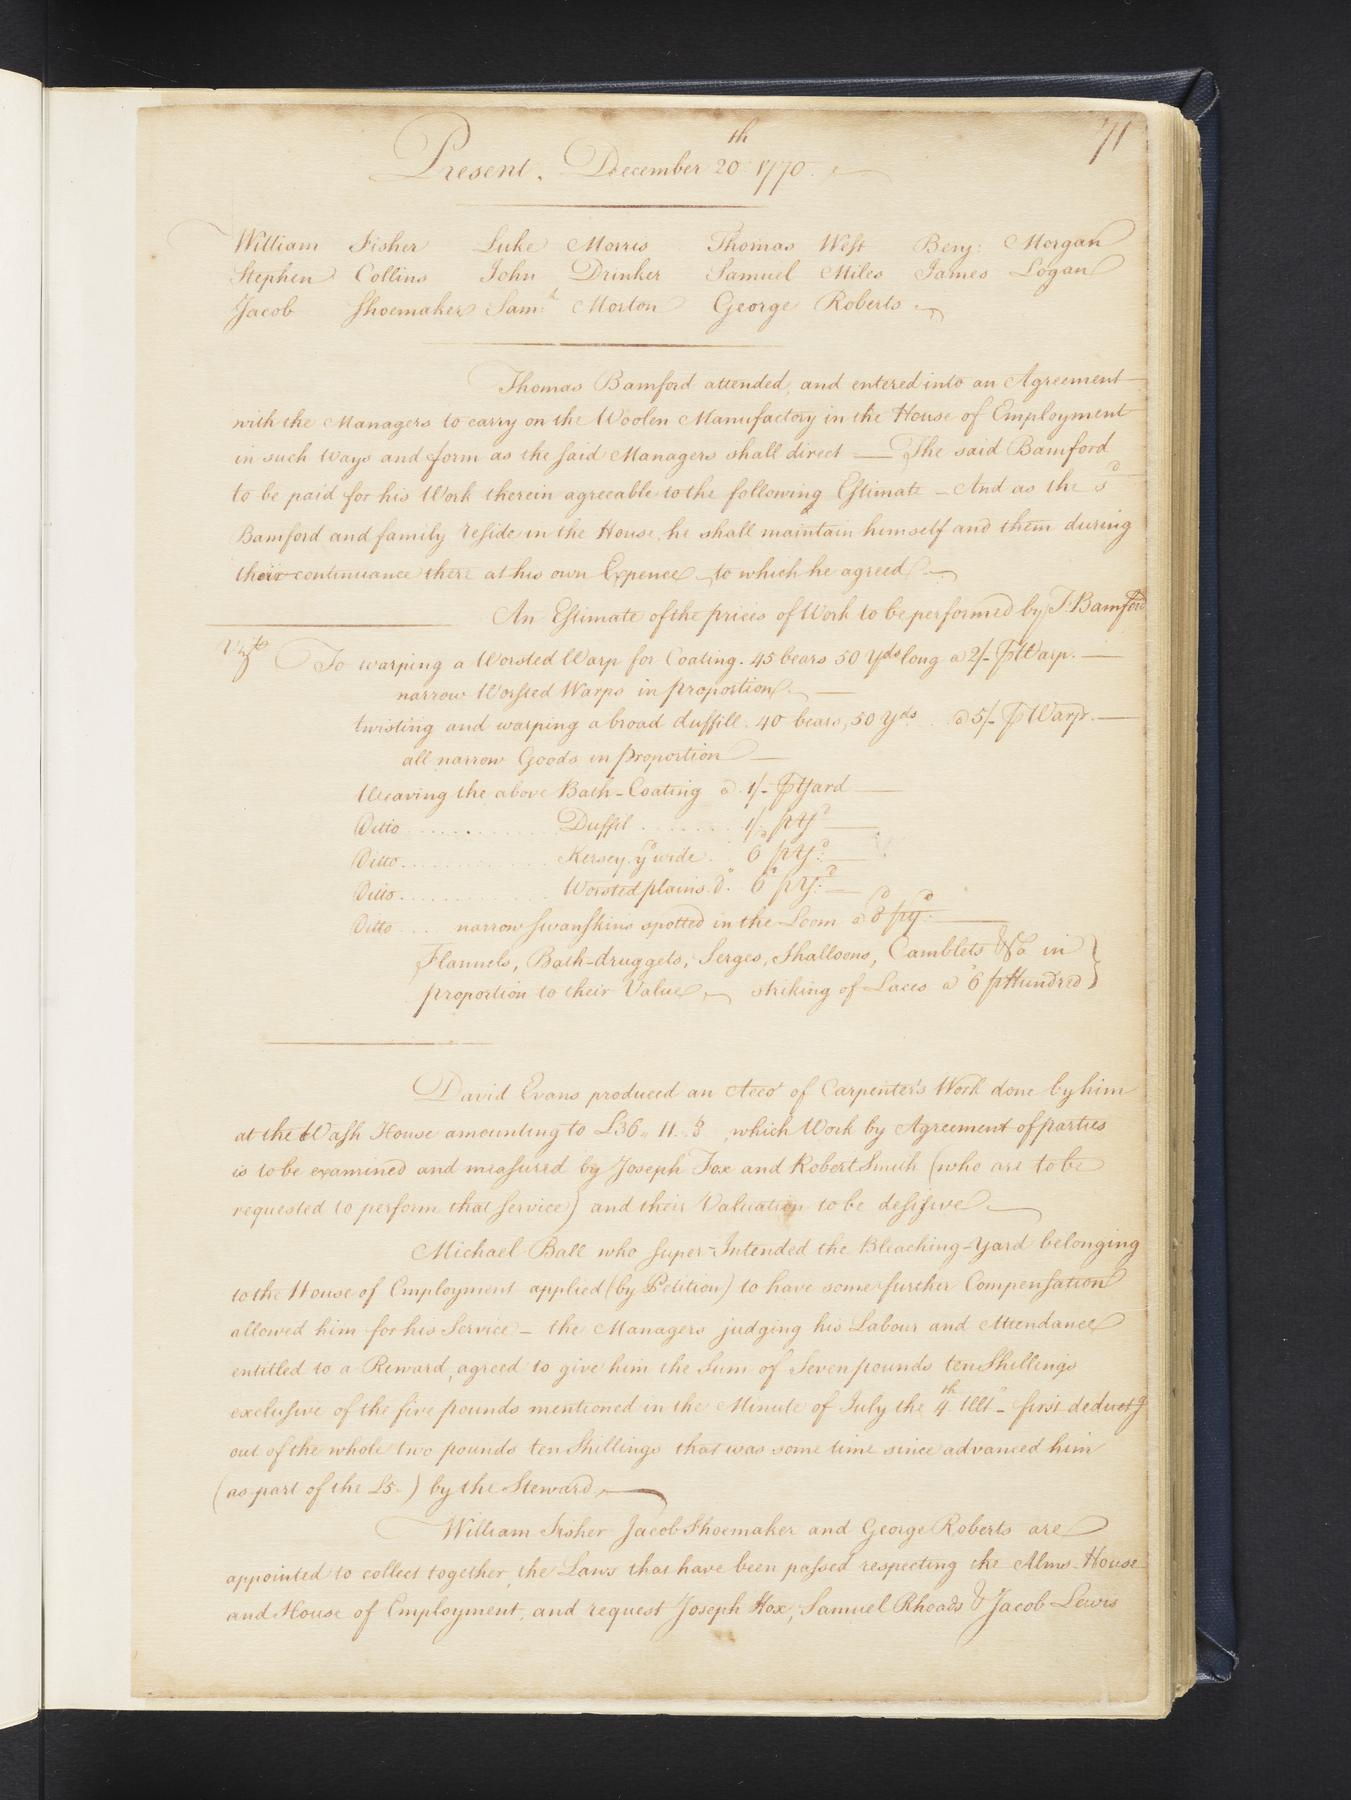 71
Present. December 20th 1770.
William Fisher Luke Morris Thomas West Benj: Morgan
Stephen Collins John Drinker Samuel Miles James Logan
Jacob Shoemaker Saml. Morton George Roberts
Thomas Bamford attended, and entered into an Agreement
with the Managers to carry on the Woolen Manufactory in the House of Employment
in such ways and form as the said Managers shall direct — The said Bamford
to be paid for his Work therein agreeable to the following Estimate - And as the sd
Bamford and family reside in the House, he shall maintain himself and them during
their continuance there at his own Expence - to which he agreed -
An Estimate of the prices of Work to be performed by T. Bamford
Vizt To warping a Worsted Warp for Coating. 45 bears 50 Yds long a 2/- P Warp. —
narrow Worsted Warps in proportion. —
twisting and warping a broad duffill. 40 bears, 50 Yds a 5/- P Warp. —
all narrow Goods in proportion —
Weaving the above Bath-Coating a 1/- P Yard —
Ditto . . . . . . . . . . . . Duffil . . . . . . . . 1/2 p Yd —
Ditto . . . . . . . . . . . . Kersey yd wide . . 6 p Yd: —
Ditto . . . . . . . . . . . . Worsted plains do. 6d p Yd: —
Ditto . . . . narrow Swanskins spotted in the Loom a 8d p Yd. —
Flannels, Bath-druggets, Serges, Shalloons, Camblets &Ca in
proportion to their Value, — striking of Laces a 6d p Hundred
David Evans produced an Acct of Carpenter's Work done by him
at the Wash House amounting to £36„ 11„ 3 , which Work by Agreement of parties
is to be examined and measured by Joseph Fox and Robert Smith (who are to be
requested to perform that Service) and their Valuation to be desisive. —
Michael Ball who Super-Intended the Bleaching-Yard belonging
to the House of Employment applied (by Petition) to have some further Compensation
allowed him for his Service - the Managers judging his Labour and Attendance
entitled to a Reward, agreed to give him the Sum of Seven pounds ten Shillings
exclusive of the five pounds mentioned in the Minute of July the 4th Ulto - first deductg
out of the whole two pounds ten Shillings that was some time since advanced him
(as part of the £5-) by the Steward. —
William Fisher Jacob Shoemaker and George Roberts are
appointed to collect together, the Laws that have been passed respecting the Alms-House
and House of Employment, and request Joseph Fox, Samuel Rhoads & Jacob Lewis